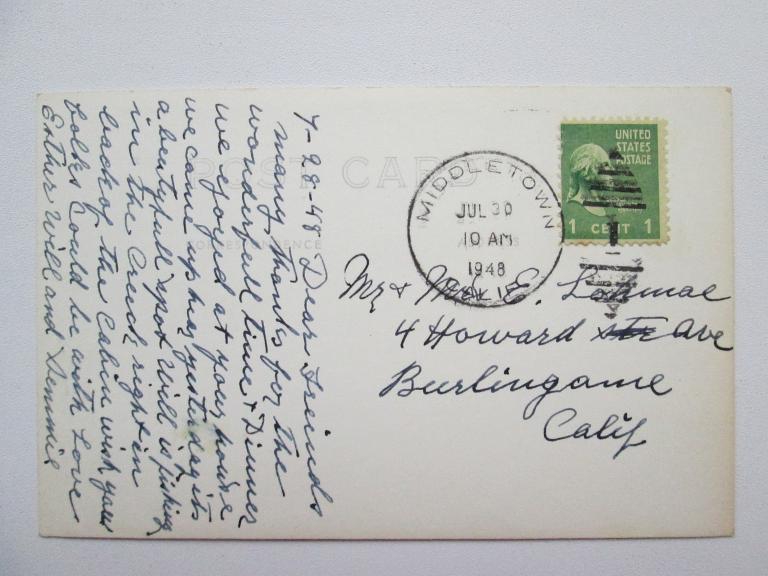 POST CARD
CORRESPONDENCE
ADDRESS
7-28-48 Dear Freinds
many thanks for the
wonderfull time & Dinner
we ejoind at your house
we came up hear yesterday its
a beautyfull spot Will is fishing
in the Creek right in
back of the Cabin wish you
folks could be with Love
Esther Will and
MIDDLETOWN
JUL 30
10 AM
1948
CALIF.
UNITED
STATES
POSTAGE
1 CENT 1
Mr & Mrs E.
4 Howard Ave
Burlingame
Calif